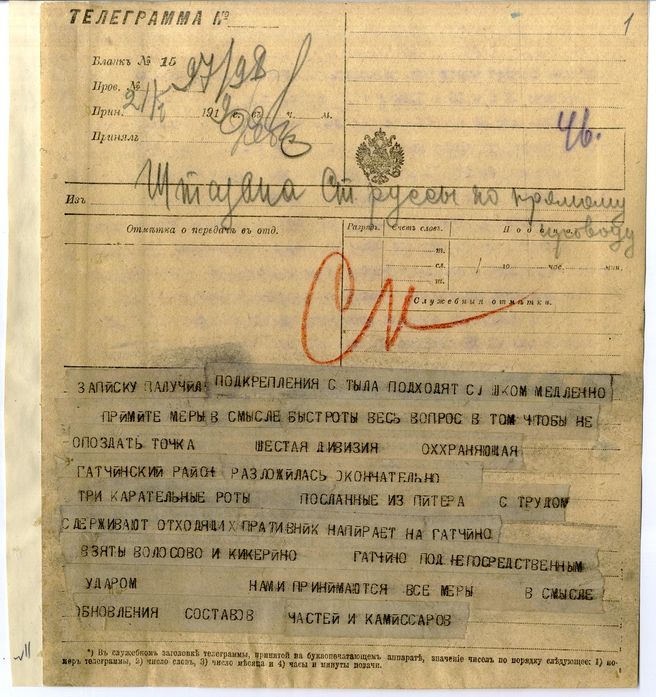 ТЕЛЕГРАММА №
1
Бланкъ № 15
Пров. № 97/98
Прин. 21/V 1919 г. въ ч. м.
Принялъ
46.
Изъ Ст руссы по прямому
проводу
Отмѣтка о передачѣ въ отд.
Разрядъ. Счетъ словъ. Подана.
т.
сл. / го час. мин.
т.
Служебныя отмѣтки.
См
ЗАПИСКУ ПАЛУЧИЛ ПОДКРЕПЛЕНИЯ С ТЫЛА ПОДХОДЯТ СЛ ШКОМ МЕДЛЕННО
ПРИМИТЕ МЕРЫ В СМЫСЛЕ БЫСТРОТЫ ВЕСЬ ВОПРОС В ТОМ ЧТОБЫ НЕ
ОПОЗДАТЬ ТОЧКА ШЕСТАЯ ДИВИЗИЯ ОХХРАНЯЮЩАЯ
ГАТЧИНСКИЙ РАЙОН РАЗЛОЖИЛАСЬ ОКОНЧАТЕЛЬНО
ТРИ КАРАТЕЛЬНЫЕ РОТЫ ПОСЛАННЫЕ ИЗ ПИТЕРА С ТРУДОМ
СДЕРЖИВАЮТ ОТХОДЯЩИХ ПРАТИВНИК НАПИРАЕТ НА ГАТЧИНО
ВЗЯТЫ ВОЛОСОВО И КИКЕРИНО ГАТЧИНО ПОД НЕПОСРЕДСТВЕННЫМ
УДАРОМ НАМИ ПРИНИМАЮТСЯ ВСЕ МЕРЫ В СМЫСЛЕ
ОБНОВЛЕНИЯ СОСТАВОВ ЧАСТЕЙ И КАМИССАРОВ
*) Въ служебномъ заголовкѣ телеграммы, принятой на буквопечатающемъ аппаратѣ, значеніе чиселъ по порядку слѣдующее: 1) но-
меръ телеграммы, 2) число словъ, 3) число мѣсяца и 4) часы и минуты подачи.